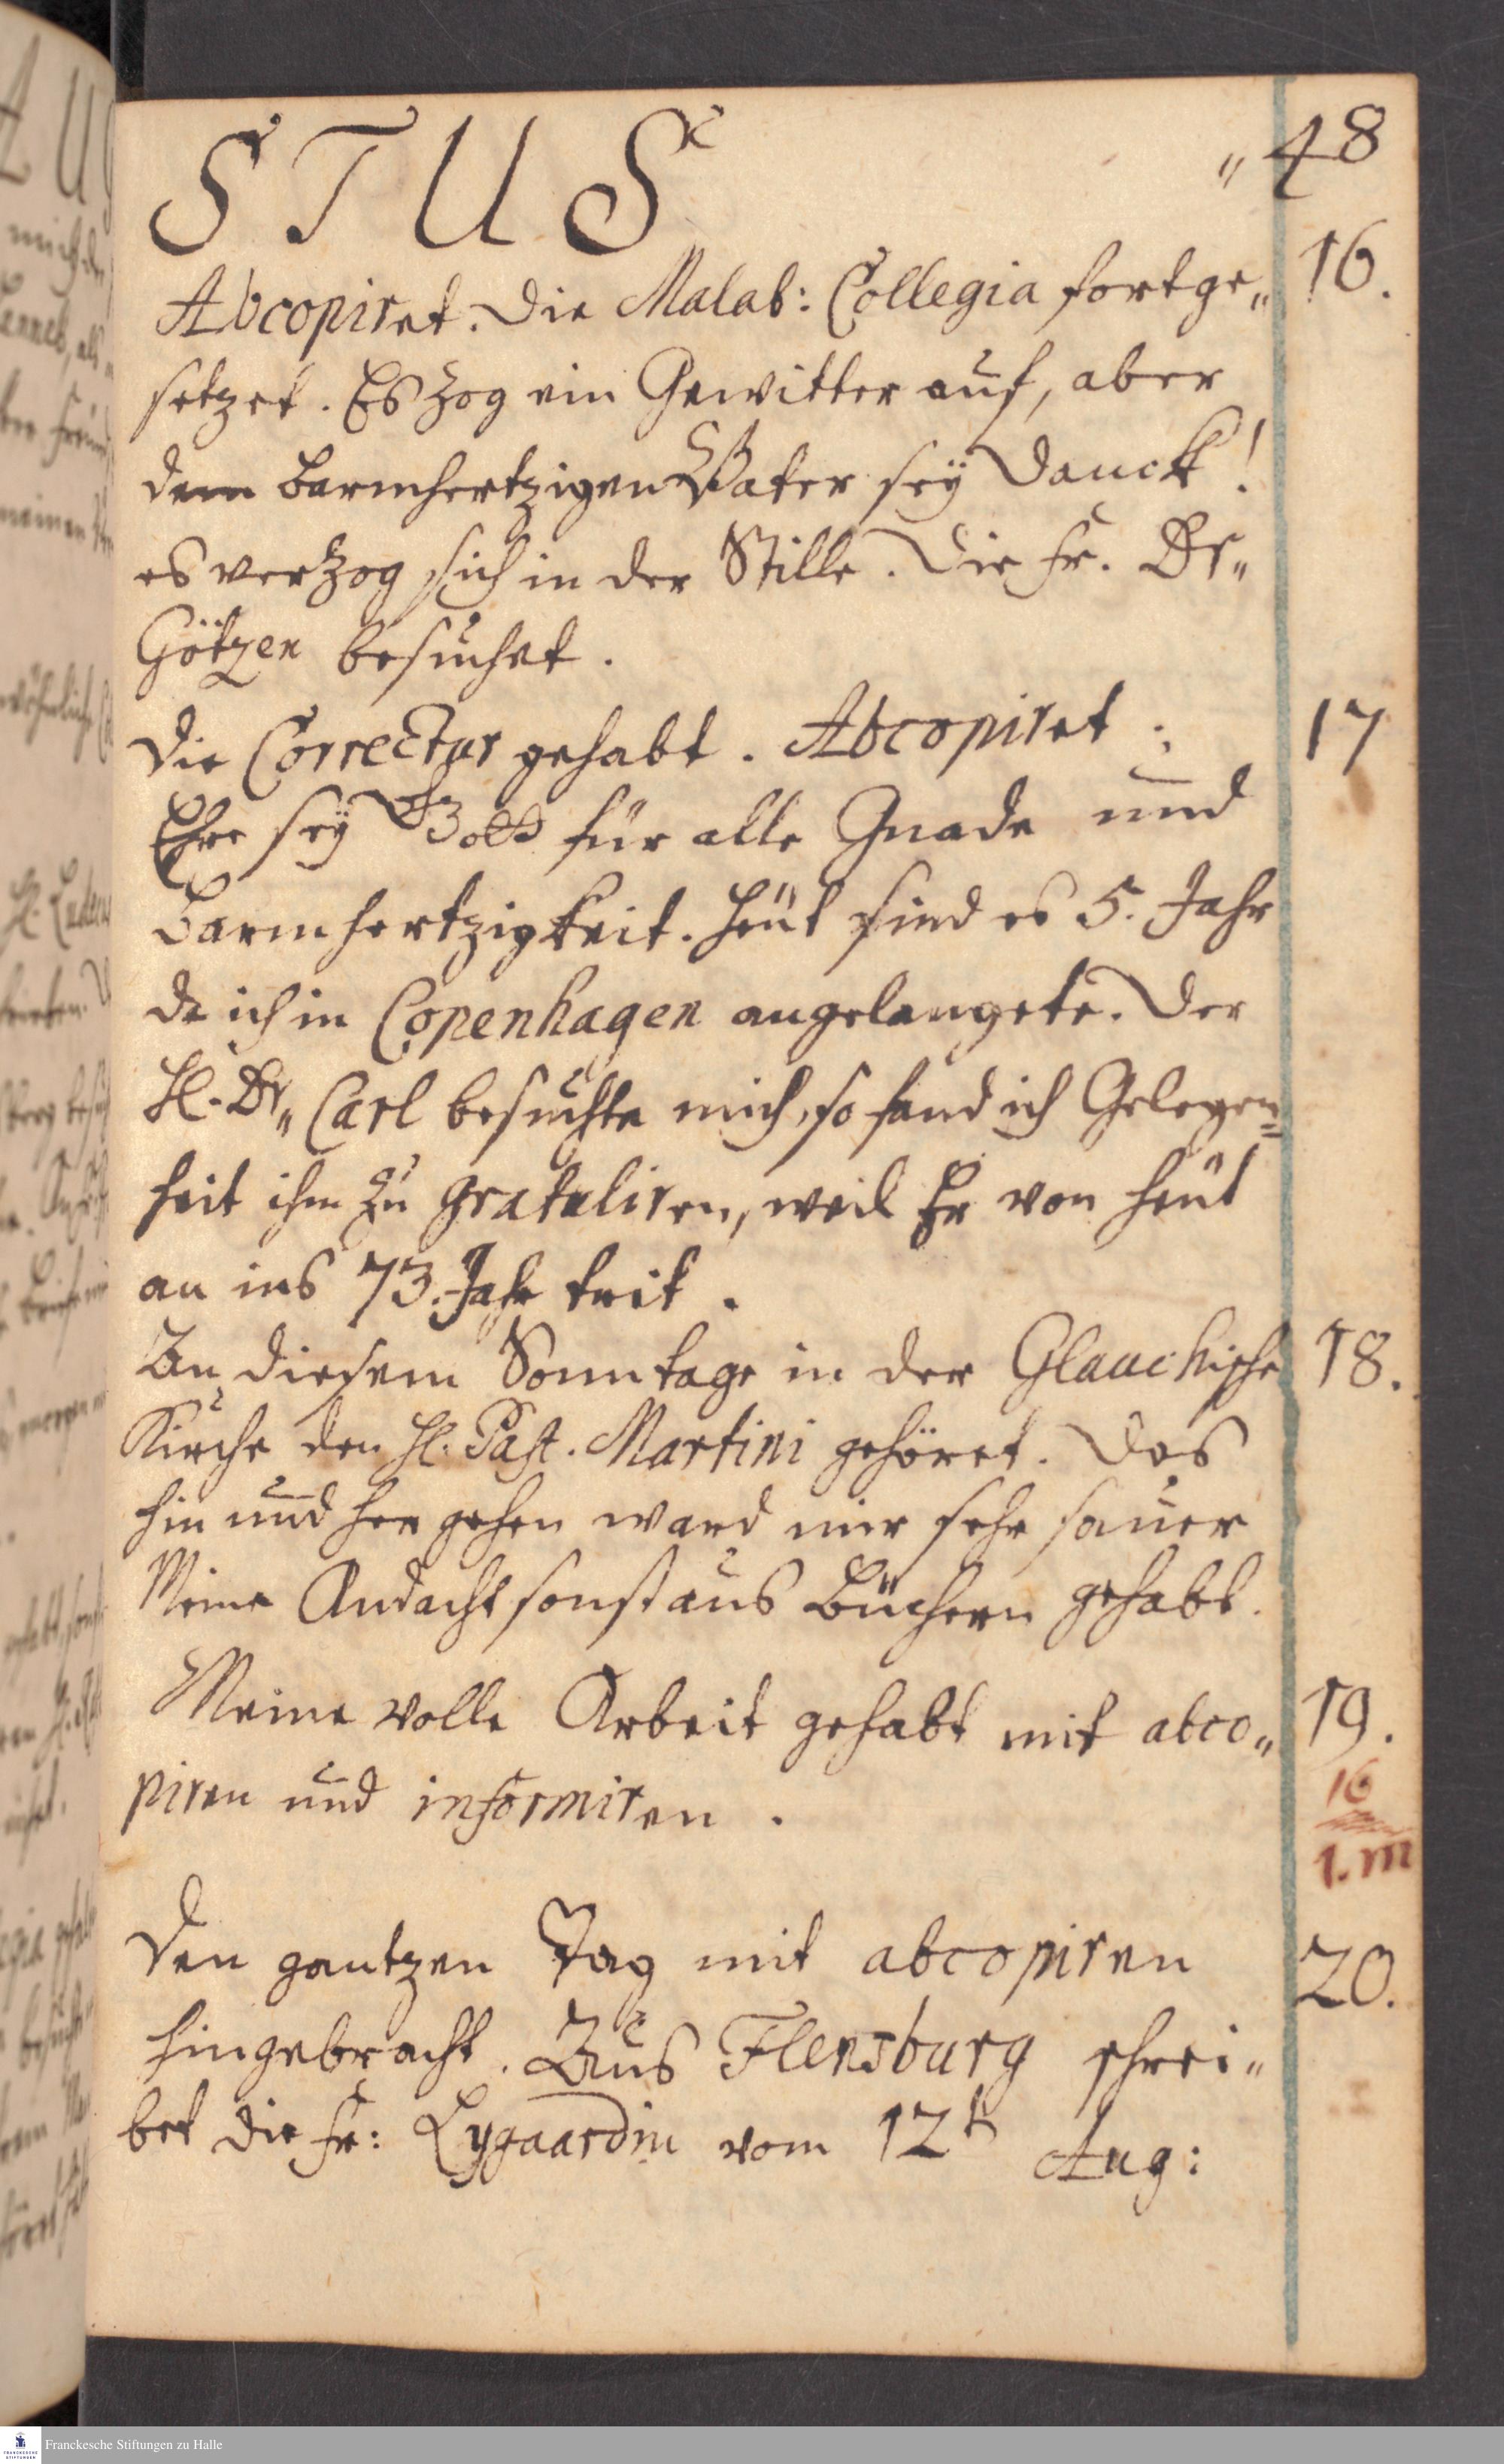 STUS „48
Abcopiret. Die Malab: Collegia fortge„ 16.
setzet. Es zog ein Gewitter auf, aber
dem barmhertzigen Vater seÿ Danck!
es verzog sich in der Stille. Die Fr. Dr„
Götzen besuchet.
Die Correctur gehabt. Abcopiret. 17
Ehre seÿ Gott für alle Gnade und
Barmhertzigkeit. Heut sind es 5. Jahr
da ich in Copenhagen angelangete. Der
H. Dr„ Carl besuchte mich, so fand ich Gelegen=
heit ihm zu gratuliren, weil Er von heut
an ins 73. Jahr trit.
An diesem Sonntage in der Glauchische 18.
Kirche den H. Past. Martini gehöret. Das
hin und her gehen ward mir sehr sauer
Meine Andacht sonst aus Büchern gehabt.
Meine volle Arbeit gehabt mit abco„ 19.
piren und informiren.
16
1. m
Den gantzen Tag mit abcopiren 20.
hingebracht. Aus Flensburg schrei„
bet die Fr: Lygaardin vom 12t Aug:
Franckesche Stiftungen zu Halle